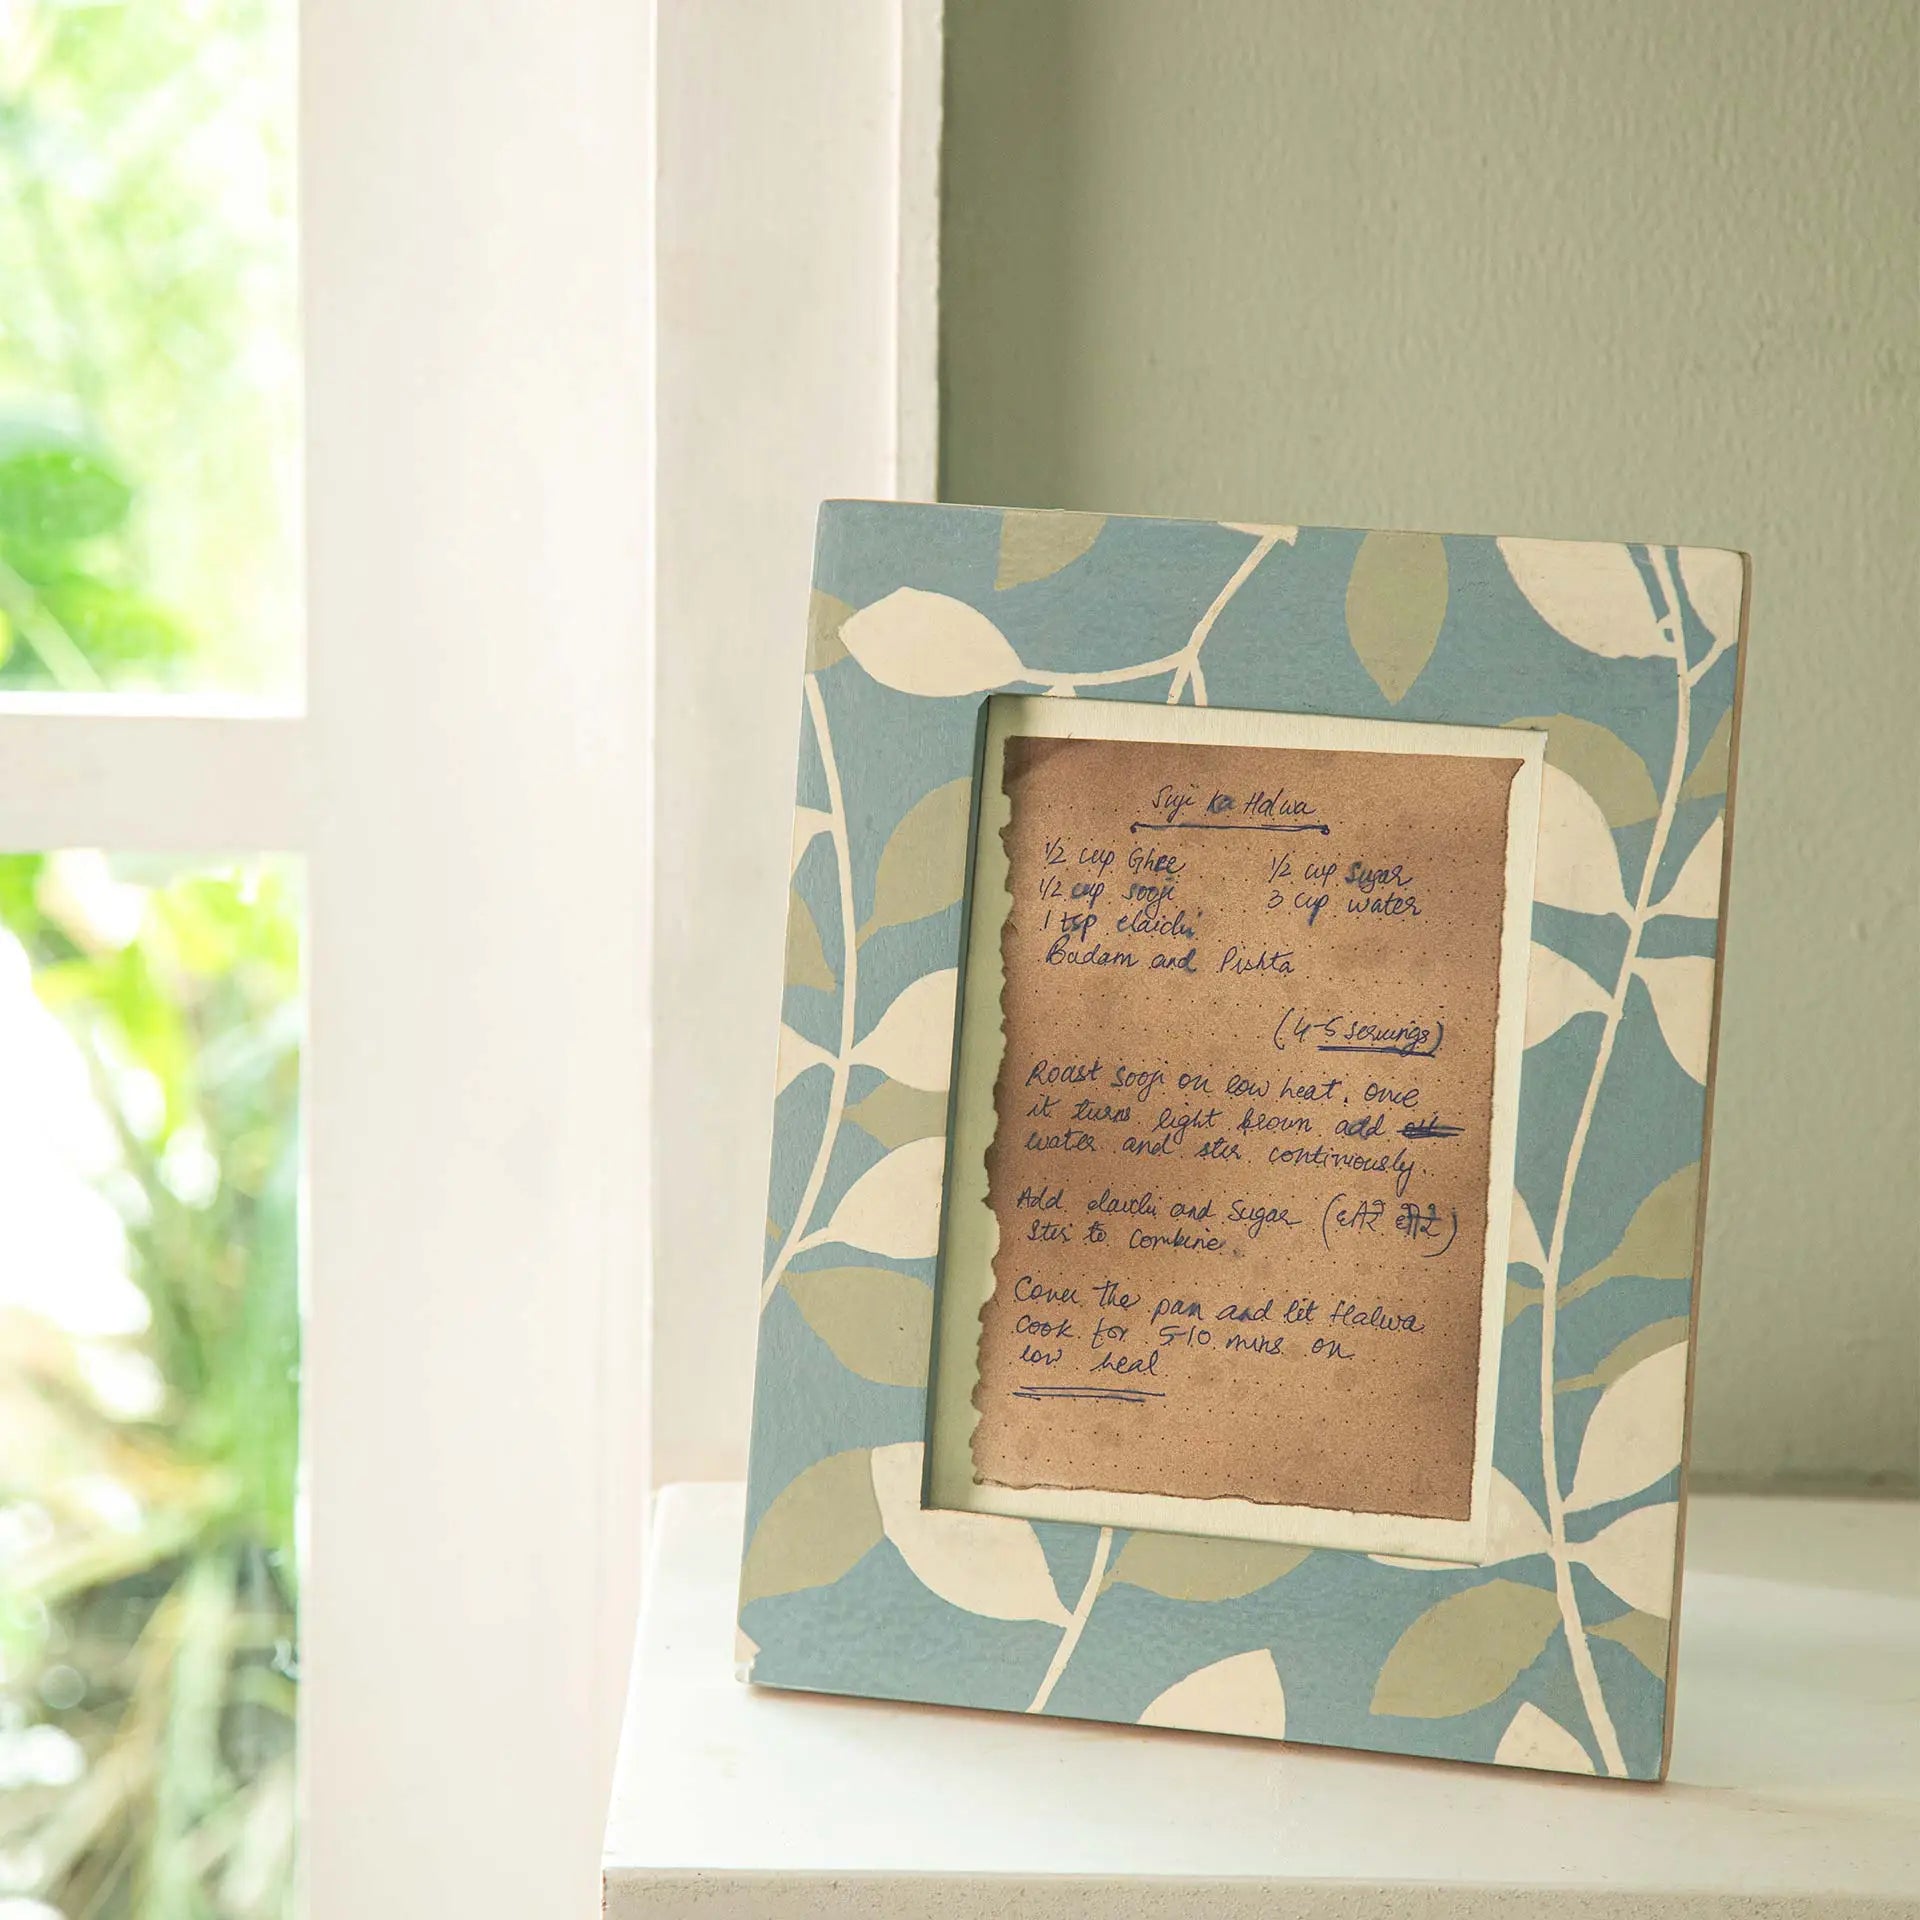 Suji Ka Halwa
1/2 cup Ghee
1/2 cup sooji
1 tsp elaichi
Badam and Pishta
1/2 cup Sugar
3 cup water
(4-5 servings)
Roast sooji on low heat, once
it turns light brown add
water and stir continiously.
Add elaichi and Sugar (
Stir to Combine.
Cover the pan and let Halwa
cook for 5-10 mins on
low heat